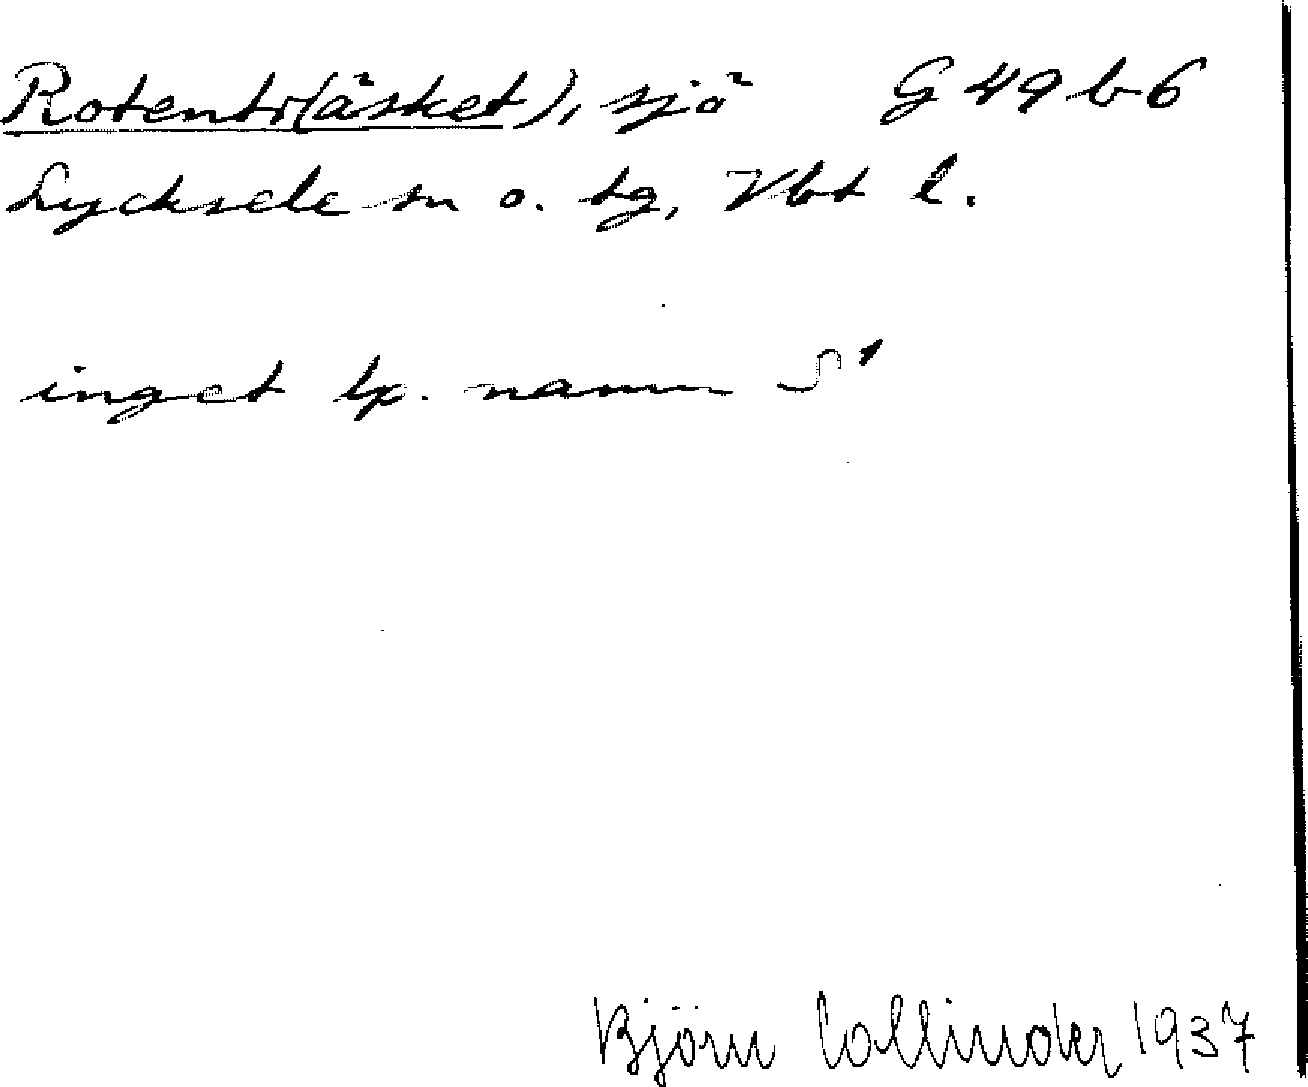 Rotentr(äsket), sjö G 49 b 6
Lycksele sn o. tg, Vbt l.
inget lp. namn S¹
Björn Collinder 1937